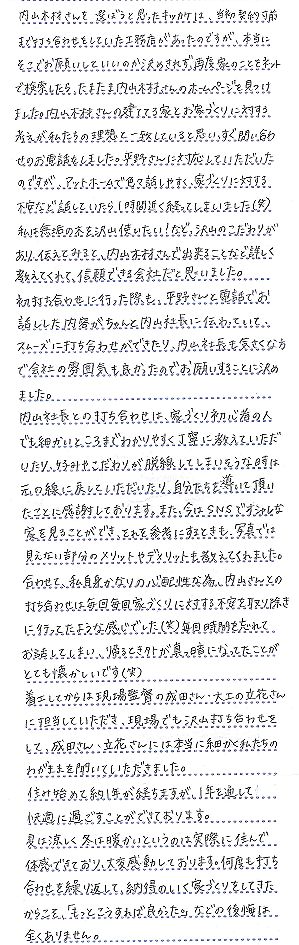 内山木材さんを選ぼうと思ったキッカケは、当初契約寸前
まで打ち合わせをしていた工務店があったのですが、本当に
そこでお願いしていいのか決めきれず、再度家のことをネット
で検索したら、たまたま内山木材さんのホームページを見つけ
ました。内山木材さんの建ててる家とお家づくりに対する
考えが私たちの理想と一致していると思い、すぐ問い合わ
せのお電話をしました。平野さんに対応していただいた
のですが、アットホームで色々話しやすく、家づくりに対する
不安など話していたら1時間近く経ってしまいました(笑)
私は無垢の木を沢山使いたい!など、沢山のこだわりが
あり、伝えてみると、内山木材さんで出来ることなど詳しく
教えてくれて、信頼できる会社だと思いました。
初打ち合わせに行った際も、平野さんと電話でお
話しした内容がちゃんと内山社長に伝わっていて、
スムーズに打ち合わせができたり、内山社長も気さくな方
で会社の雰囲気も良かったのでお願いすることに決め
ました。
内山社長との打ち合わせは、家づくり初心者の人
でも細かいところまでわかりやすく丁寧に教えていただ
いたり、好みやこだわりが脱線してしまいそうな時は
元の線に戻していただいたり、自分たちを導いて頂い
たことに感謝しております。また、今はSNSでオシャレな
家を見ることができ、それを参考にするときも、写真では
見えない部分のメリットやデメリットも教えてくれました。
合わせて、私自身かなりの心配性な為、内山さんとの
打ち合わせは毎回毎回家づくりに対する不安を取り除き
に行ってたような感じでした(笑)毎回時間を忘れて
お話してしまい、帰るときは外が真っ暗になってたことが
とても懐かしいです(笑)
着工してからは現場監督の成田さん・大工の立花さん
に担当していただき、現場でも沢山打ち合わせを
して、成田さん・立花さんには本当に細かく私たちの
わがままを聞いていただきました。
住み始めて約1年が経ちますが、1年を通して
快適に過ごすことができております。
夏は涼しく冬は暖かいというのは実際に住んで
体感できており、大変感動しております。何度も打ち
合わせを繰り返して、納得のいく家づくりをしてきた
からこそ、「もっとこうすれば良かった。」などの後悔は
全くありません。